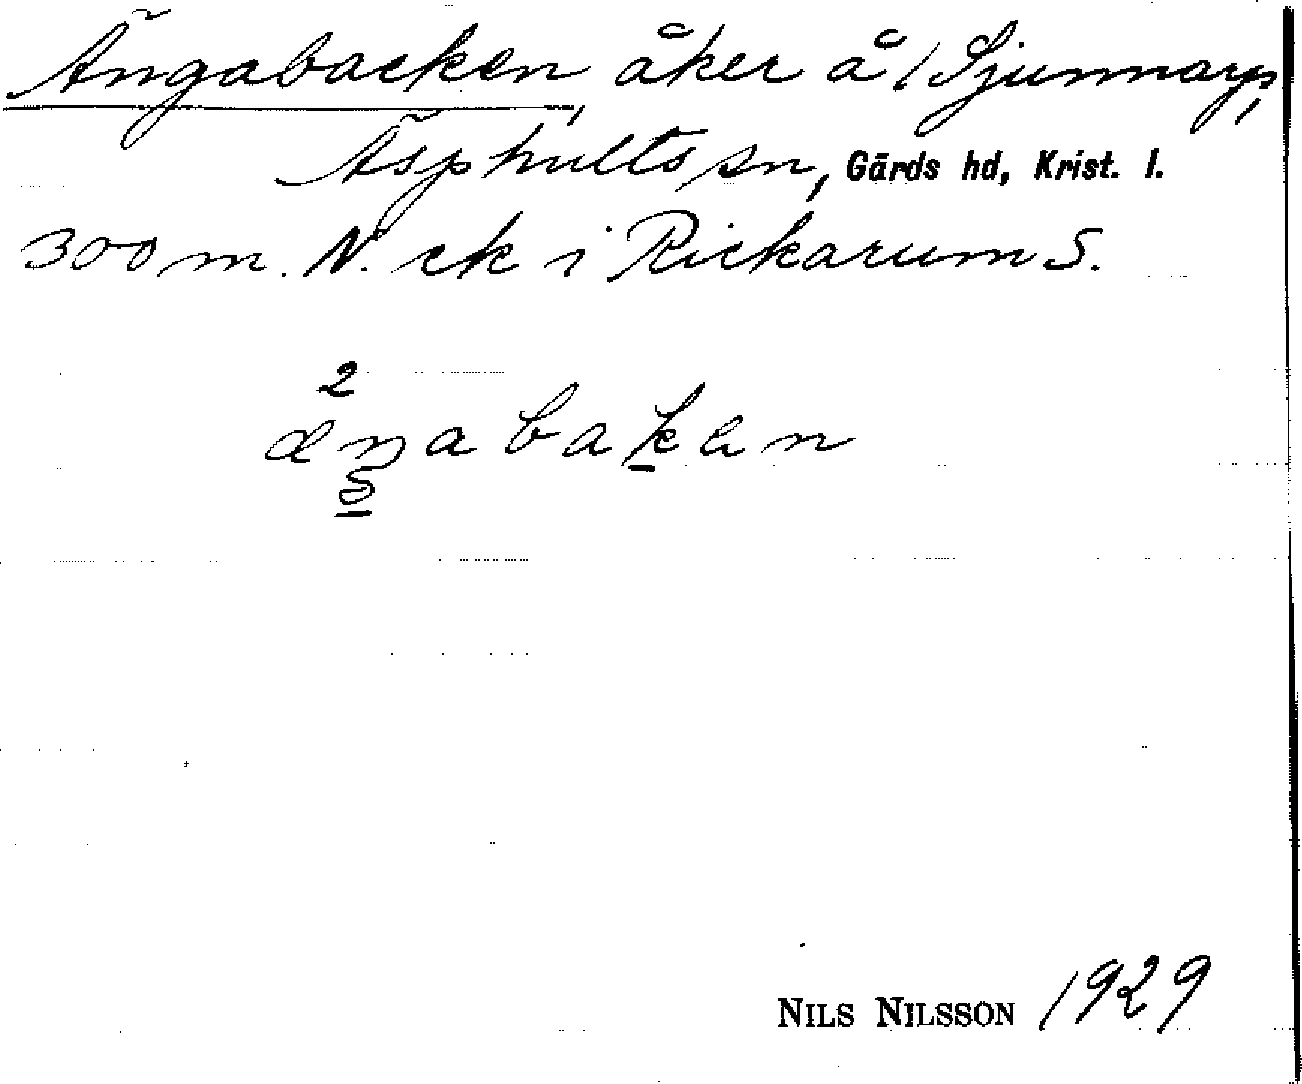 Ängabacken, åker å 1 Sjunnarp,
Äsphults sn, Gärds hd, Krist. l.
300 m. N. ck i Rickarum S.
2
æŋabakan
NILS NILSSON 1929